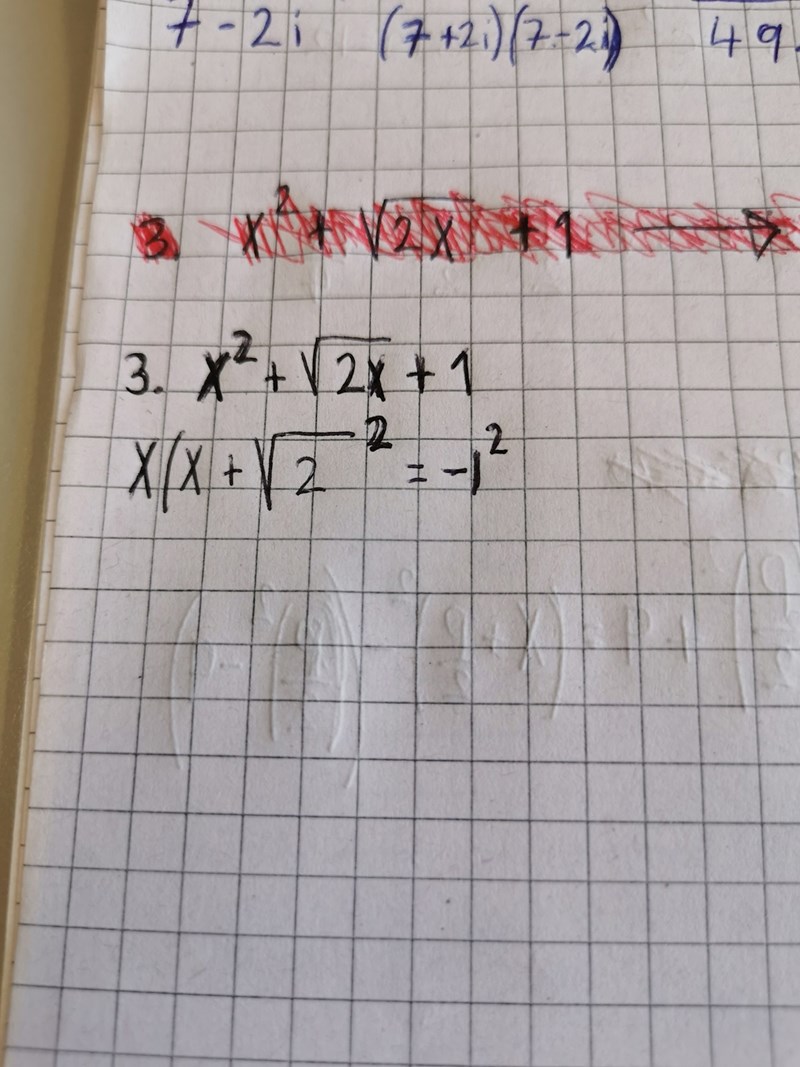 7 - 2i (7+2i)(7-2i) 49
3. x² + √2x + 1 →
3. x² + √2x + 1
x(x + √2 ² = -1²